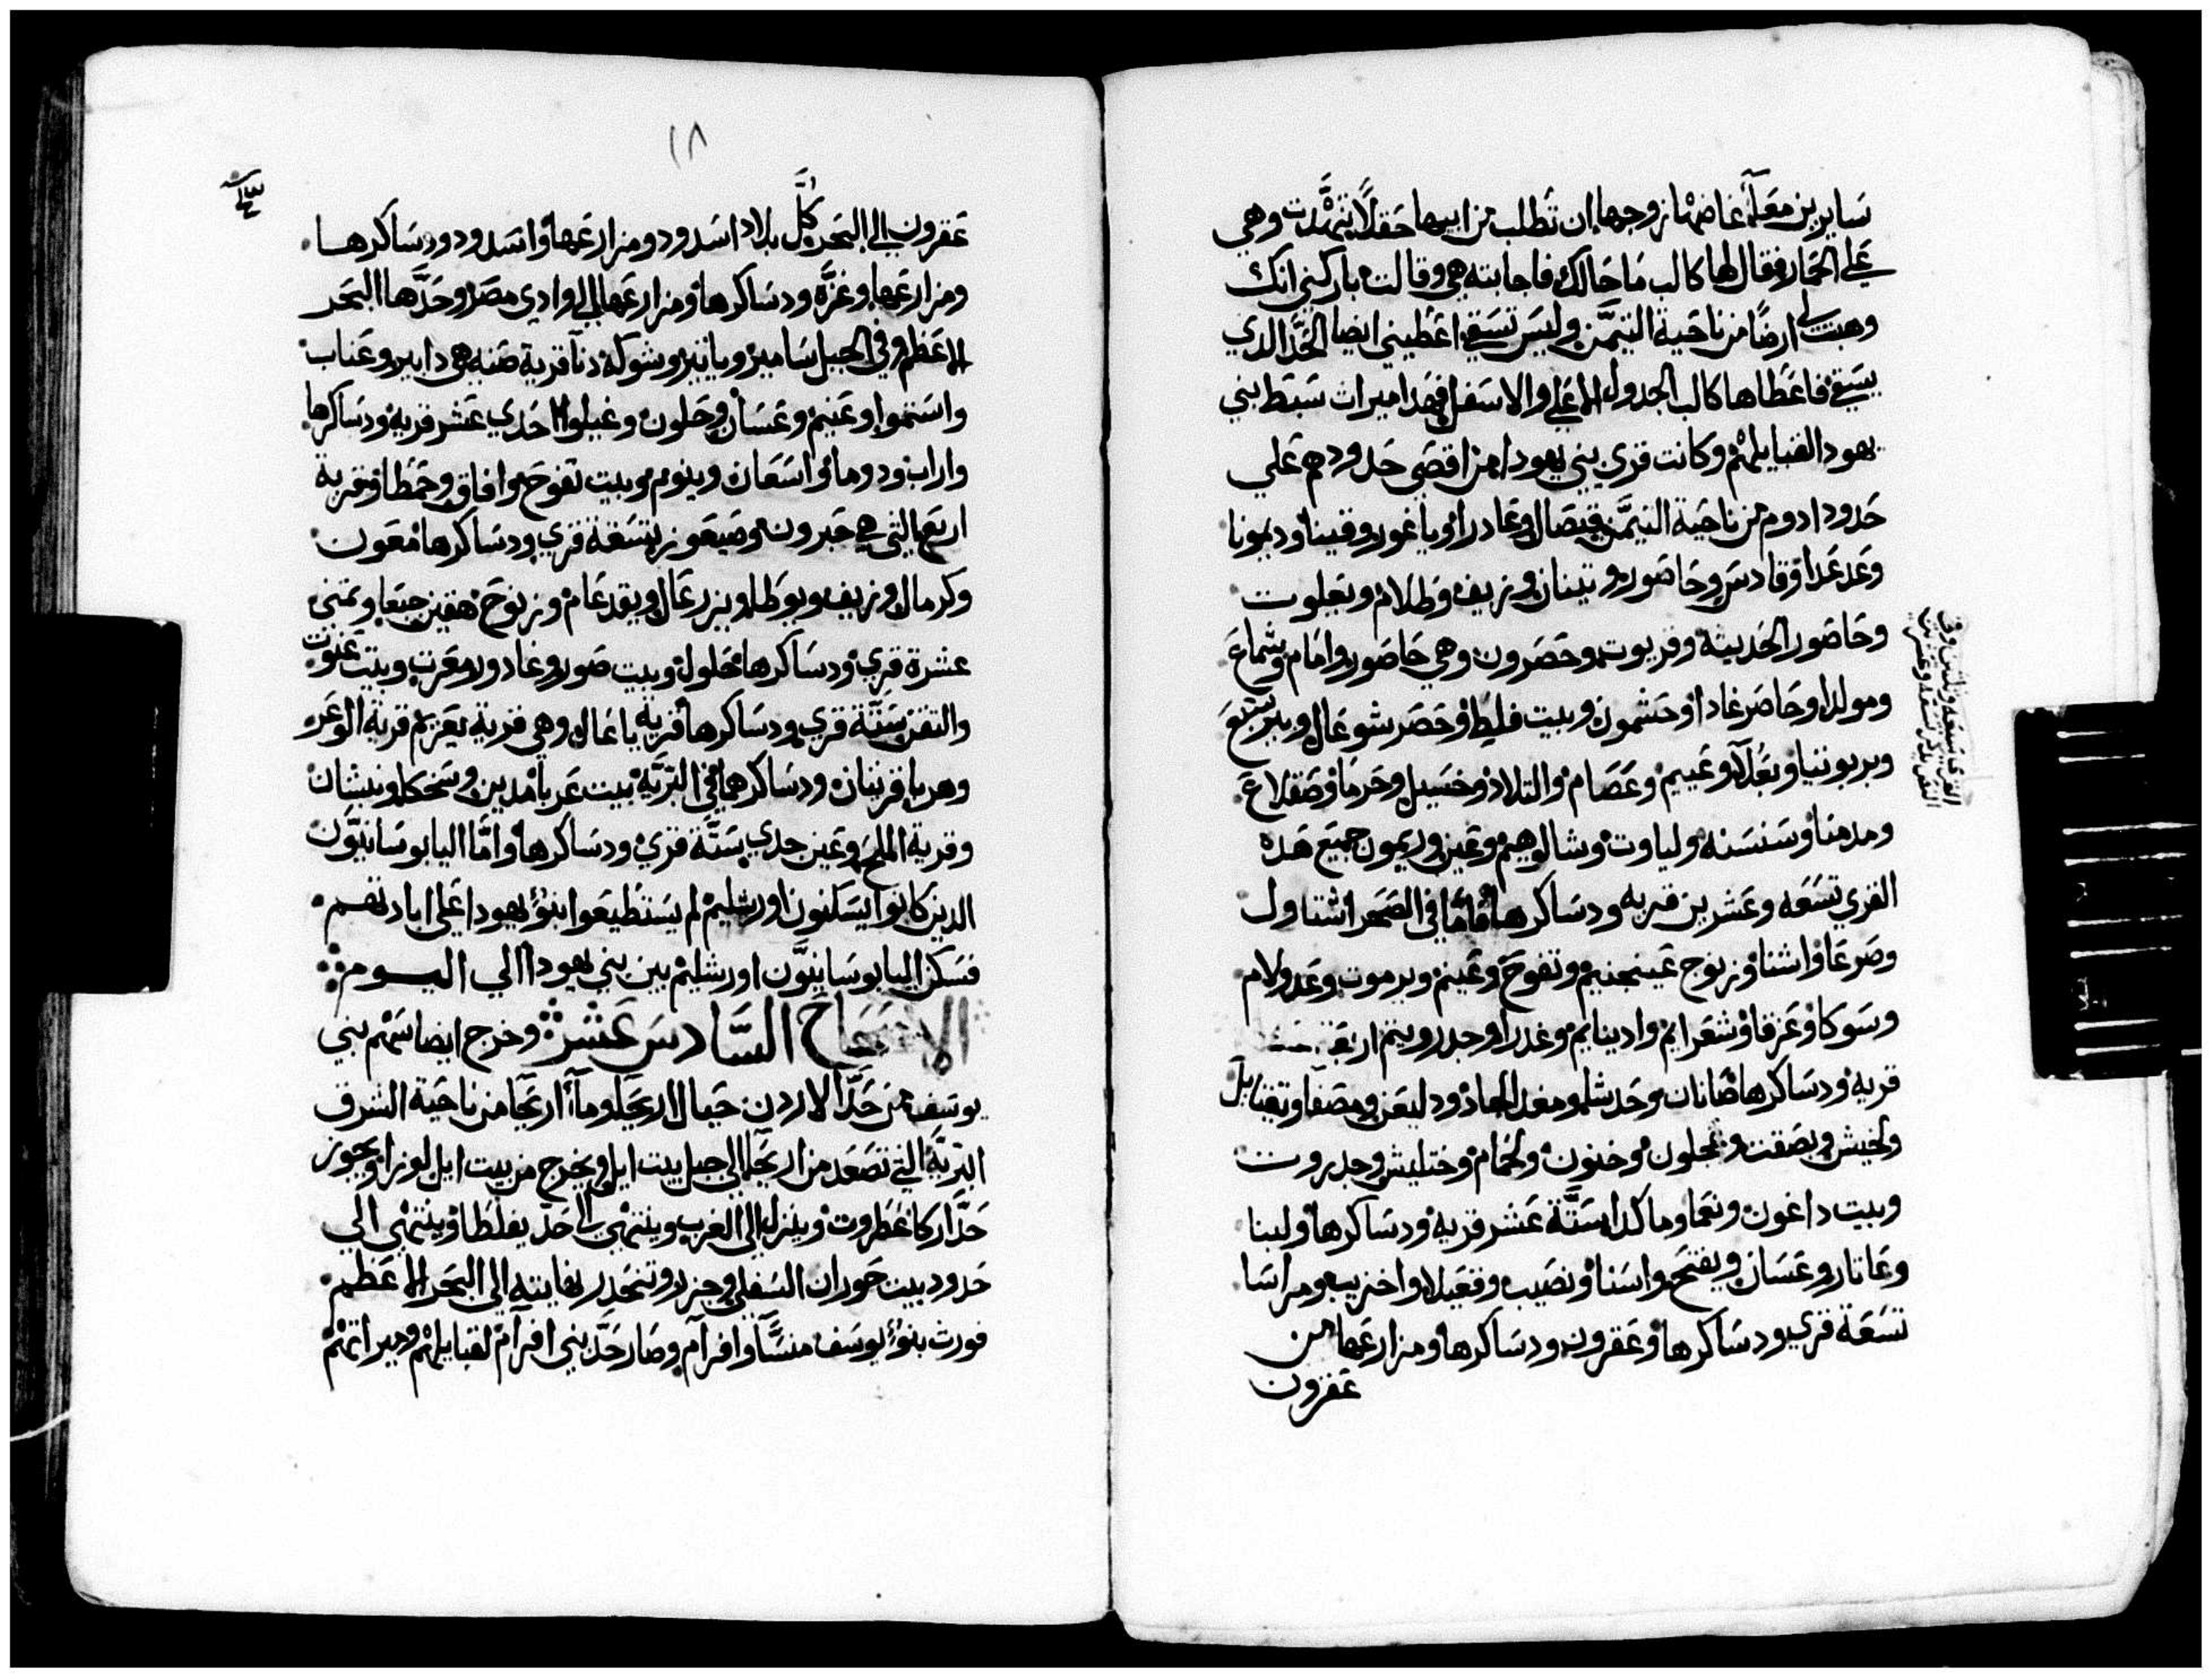 سايرين معاً غاضها زوجها ان تطلب من ابيها حقلاً وهي
على الحمار فقال لها كالب ما حالك فاجابته هي وقالت باركني انك
وهبت لي ارضًا من ناحية التيمن وليس تسقي اعطيني ايضا الحد الدي
يسقي فاعطاها كالب الجدول الاعلي والاسفل فهدا ميرات سبط بني
يهودا لقبايلهم وكانت قري بني يهودا من اقصي حدودهم علي
حدود ادوم من ناحية التيمن قبصال وعادرا وياغور وقينا وديمونا
وعدعدا وقادس وحاصور وتينان وزيف وطلام وبعلوت
وحاصور الحديثه وقريوت وحصرون وهي حاصور وامام وشماع
ومولدا وحاصر غادا وحشمون وبيت فليط وحصر شوعال وبير سبع
وبربوتيا وبعلا وعييم وعصام والتلاد وخسيل وحرما وصقلاع
ومدمنا وسنسنه ولباوت وشالوهيم وعين وريمون جميع هده
القري تسعه وعشرين قريه ودساكرها فاما في الصحرا اشتاول
وصرعا واشنا وزنوح عينجنيم وتفوح وعينم ويرموت وعدولام
وسوكا وعزقا وشعرايم واديتايم وغدرا وجدرويتم اربع
قريه ودساكرها صانان وحدشا ومغدل الجاد ودليعن ومصفا ويقتايل
ولخيش وبصقت وعجلون وخبون ولحمام وختليش وجدروت
وبيت داغون ونعما وماكدا ستة عشر قريه ودساكرها ولبنا
وعاتار وعسان ويفتح واسنا ونصيب وقعيلا واخزيب ومراسا
تسعة قري ودساكرها وعقرون ودساكرها ومزارعها من
عقرون
القري تسعه وثلثين وفي
النص يدكر تسعه وعشرين
١٨
عقرون الي البحر كل بلاد اسدود ومزارعها واسدود ودساكرها
ومزارعها وغزة ودساكرها ومزارعها الي وادي مصر وحدها البحر
الاعظم وفي الجبل سامير وياتير وشوكه دنا قرية صنه هي دابير وعناب
واستموا وعنيم وغسان وحلون وغيلوا احدي عشر قريه ودساكرها
واراب ودوما واسعان وينوم وبيت تفوح وافاق وحمطا وقرية
اربع التي هي حبرون وصيعور تسعة قري ودساكرها معون
وكرمال وزيف ويوطا ويزرعال ويقدعام وزنوح هقين جبعا وتمني
عشرة قري ودساكرها حلول وبيت صور وغادور ومعرت وبيت عنوت
والتقن ستة قري ودساكرها قرية باعال وهي قرية يعريم قرية الوعر
وهربا قريتان ودساكرهما في البرية بيت عربا مدين وسخكا ونبشان
وقرية الملح وعين جدي ستة قري ودساكرها واما اليابوسانيون
الدين كانوا يسكنون اورشليم لم يستطيعوا بنو يهودا علي ابادتهم
فسكن اليابوسانيون اورشليم بين بني يهودا الي اليوم
الاصحاح السادس عشر وخرج ايضا سهم بني
يوسف من حد الاردن حيال اريحا وما اريحا من ناحية الشرق
البرية التي تصعد من اريحا الي جبل بيت ايل ويخرج من بيت ايل لوزا ويجوز
حد اركا عطروت وينزل الي الغرب وينتهي الي حد يفلطا وينتهي الي
حدود بيت حوران السفلي وجزر وتنحدر نهايته الي البحر الاعظم
فورث بنو يوسف منسا وافرام وصار حد بني افرام لقبايلهم وميراثهم